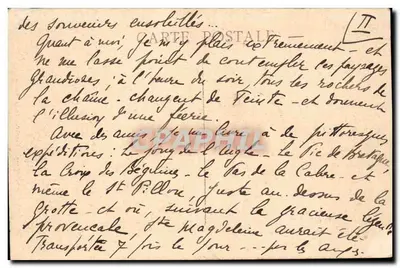 des souvenirs ensoleillés...
II
CARTE POSTALE
Quant à moi, je m'y plais extrêmement - et
ne me lasse point de contempler ces paysages
grandioses; à l'heure du soir, tous les rochers de
la chaîne - changent de teinte - et donnent
l'illusion d'une féerie.
Avec des amis, je me livre à de pittoresques
expéditions: Le - Le Pic de Bretagne,
la Croix des Béguines - le Pas de la Cabre - et
même le St Pillon, juste au-dessus de la
grotte - et où, suivant la gracieuse légende
provençale, Ste Magdeleine aurait été
transportée 7 fois le jour... par les anges.